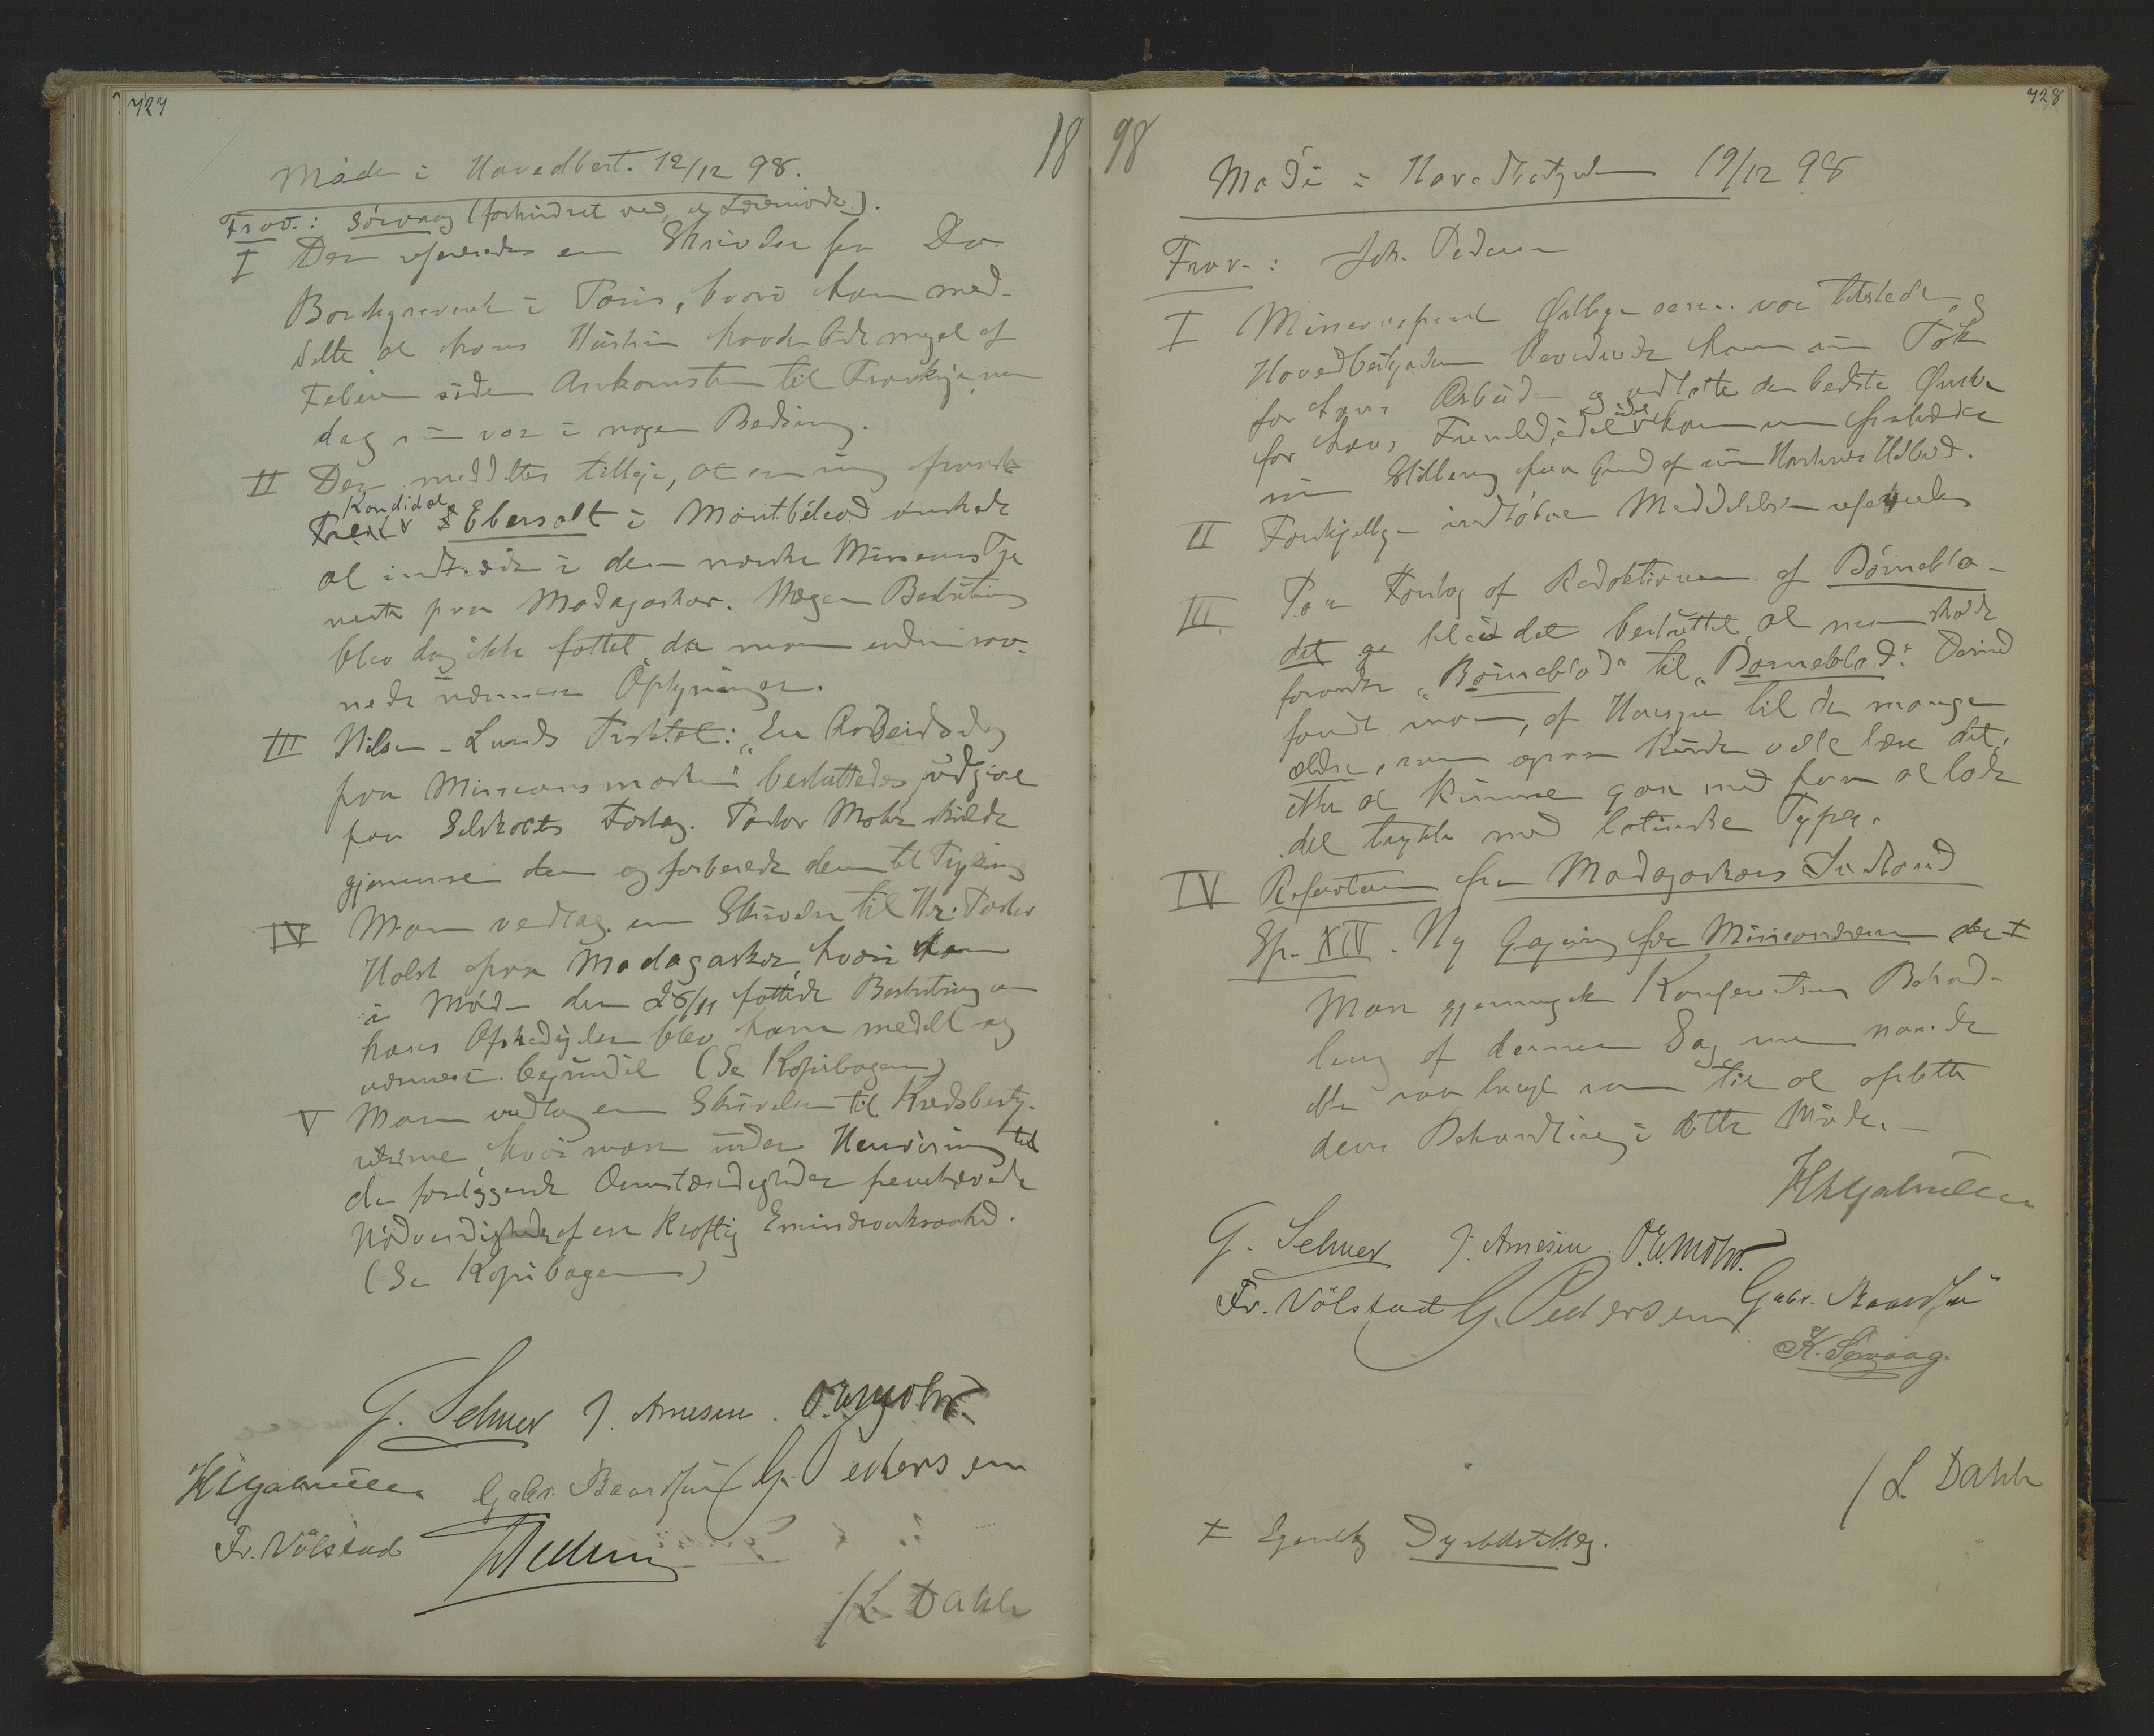 727
18
Møde i Hovedbest. 12/12 98.
Frav.: Sörvaag (forhindret ved et Lærermöde).
I Der refereredes en Skrivelse fra Dr.
Borchgrevink i Paris, hvori han med-
delte at hans Hustru havde lidt meget af
Feber siden Ankomsten til Frankrige, men
dog nu var i nogen Bedring.
II Der meddeltes tillige, at en ung fransk
Kandidat
Ebersolt i Montbéliard önskede
at indtræde i den norske Missions Tje
neste paa Madagaskar. Nogen Beslutning
blev dog ikke fattet, da man endnu sav-
nede nærmere Oplysninger.
III Nilsen-Lunds Traktat: "En Arbeidsdag
paa Missionsmarken" besluttedes udgivet
paa Selskabets Forlag. Pastor Mohr skulde
gjennemse den og forberede den til Trykning
IV Man vedtog en Skrivelse til Hr. Pastor
Holst paa Madagaskar, hvori den
i Möde den 26/11 fattede Beslutning om
hans Afskedigelse blev ham meddelt og
nærmere begrundet (Se Kopibogen)
V Man vedtog en Skrivelse til Kredsbesty-
relserne, hvori man under Henvisning til
de foreliggende Omstændigheder fremhævede
Nödvendigheden af en kraftig Emisærvirksomhed.
(Se Kopibogen)
G. Selmer J. Arnesen. O. E. Mohr.
Gabr. Baardsen G. Pedersen
Fr. Völstad
/L. Dahle
728
98
Möde i Hovedbestyrelsen 19/12 98
Frav.: Joh. Pedersen
I Missionsprest var tilstede, og
Hovedbestyrelsen bevidnede ham sin Tak
for hans Arbeide og udtalte de bedste Önsker
for hans Fremtid, idet han fratrædte
sin Stilling paa Grund af sin Hustrus Helbred.
II Forskjellige indlöbne Meddelelser refereredes
III Paa Forslag af Redaktionen af Börnebla-
det blev det besluttet at man skulde
forandre "Börneblad" til "Barneblad". Derimod
fandt man, af Hensyn til de mange
ældre, som ogsaa kunde ville læse det,
ikke at kunne gaa med paa at lade
det trykke med latinske Typer.
IV Referaterne fra Madagaskars Indland
Sp. XIV. Ny Gagering for Missionærerne der ‡
Man gjennemgik Konferentsens Behand-
ling af denne Sag, men naaede
ikke saa langt som til at afslutte
dens Behandling i dette Möde.
G. Selmer J. Arnesen O. E. Mohr.
Fr. Völstad G. Pedersen Gabr. Baardsen
K. Sörvaag.
/L. Dahle
‡ Egentlig Dyrtidstillæg.